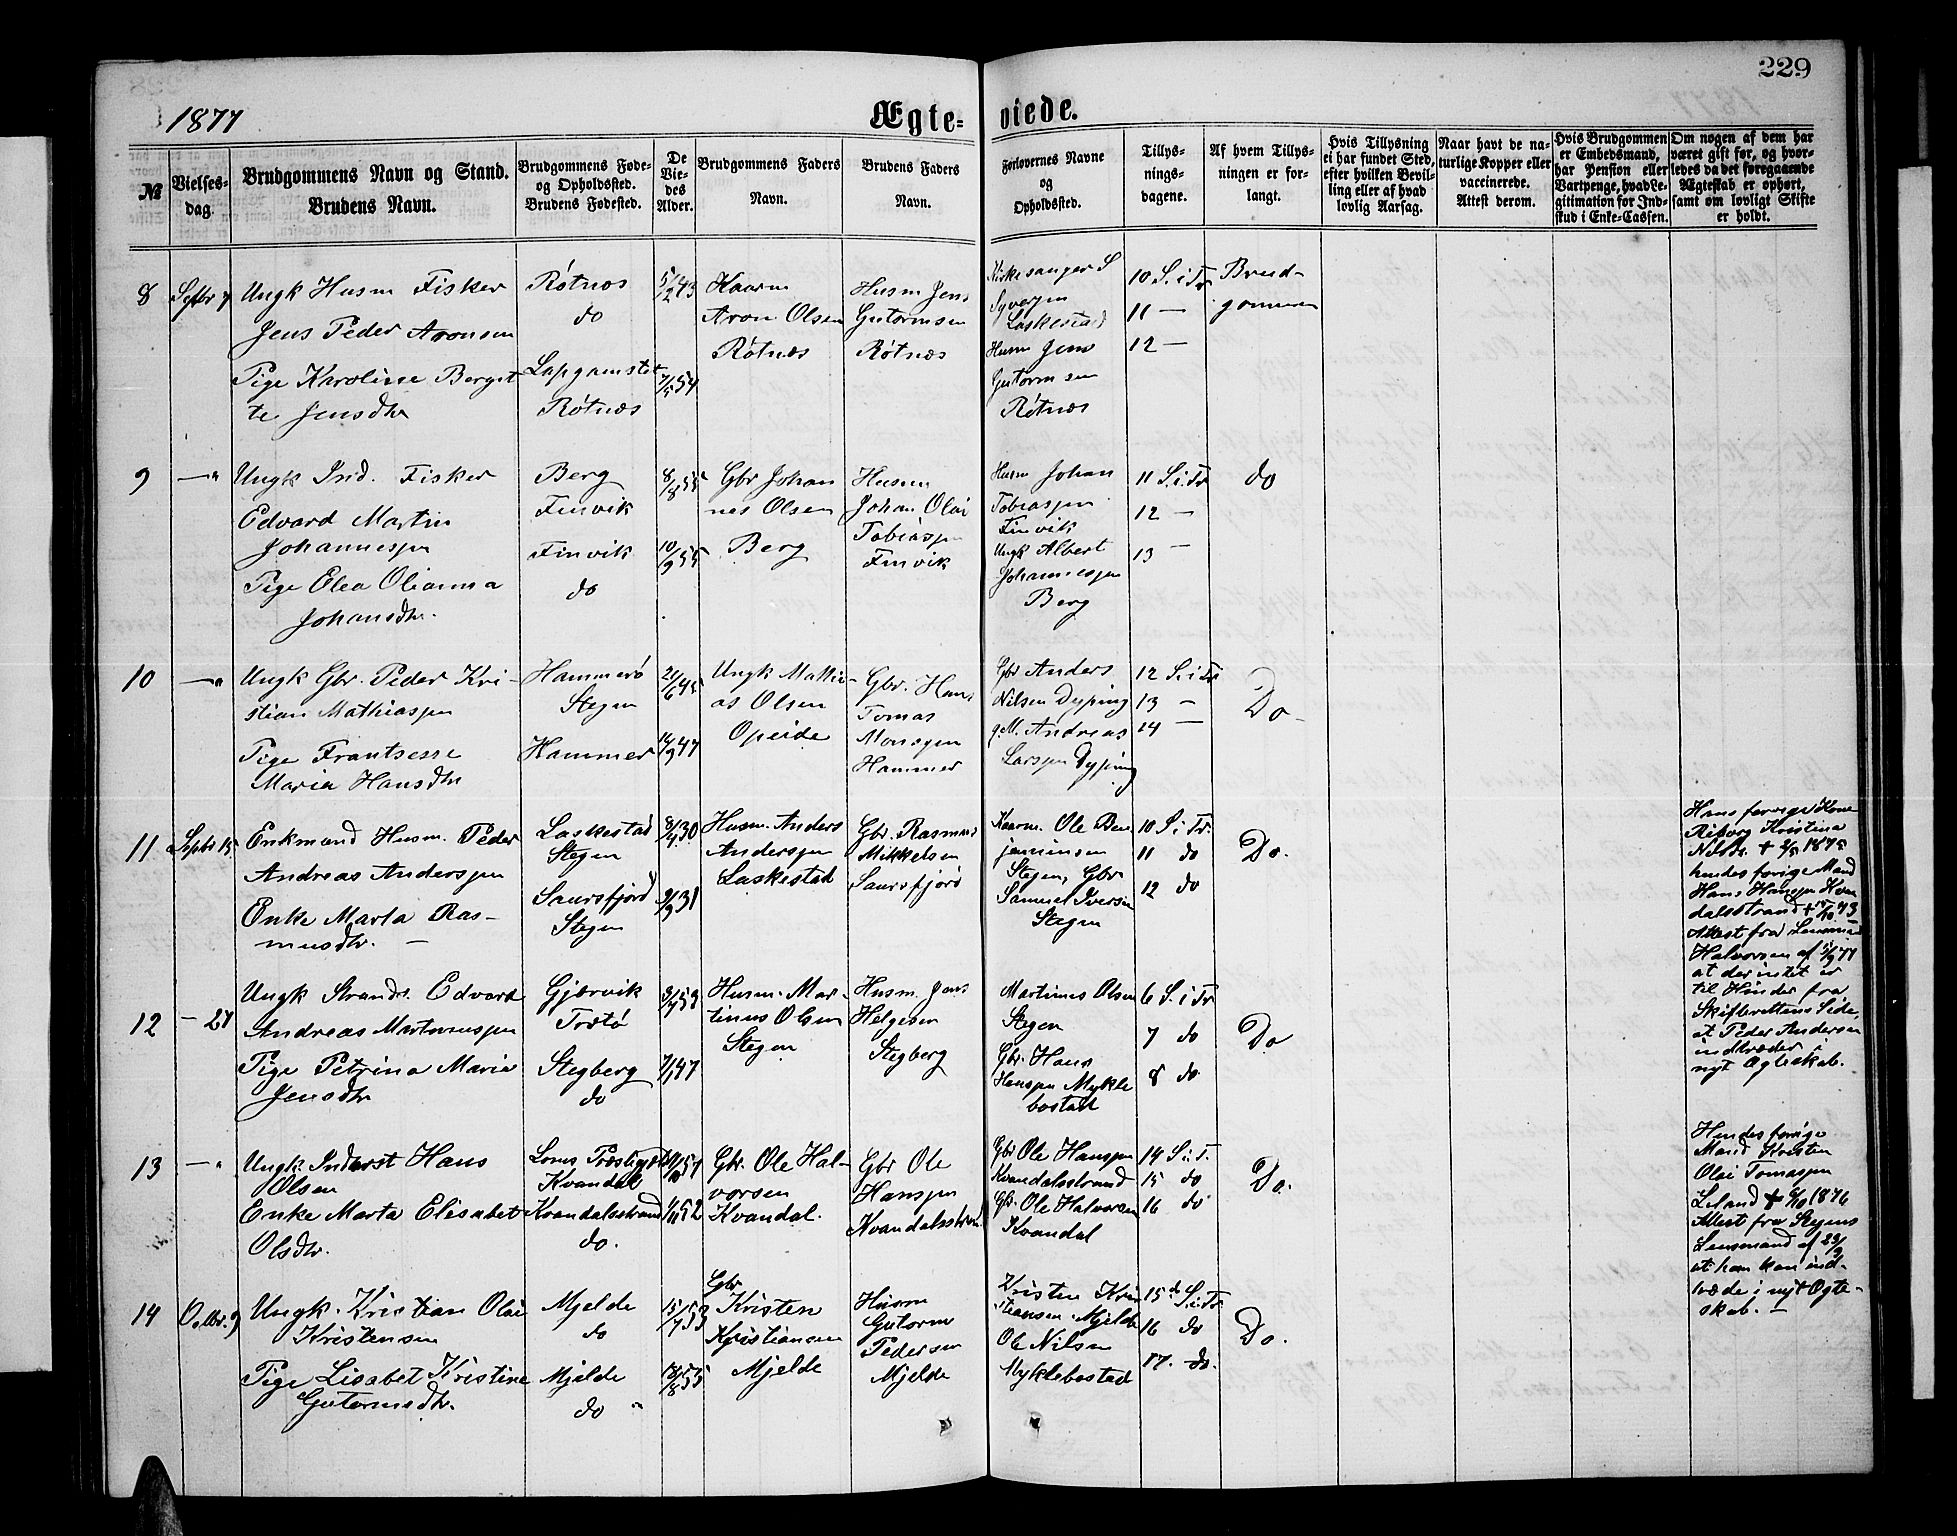 229
1877
Ægte-
viede.
№
Vielses-
dag.
Brudgommens Navn og Stand.
Brudens Navn.
Brudgommens Føde-
og Opholdssted.
Brudens Fødested.
De
Vie-
des
Alder.
Brudgommens Faders
Navn.
Brudens Faders
Navn.
Forlovernes Navne
og
Opholdssted.
Tillys-
nings-
dagene.
Af hvem Tillys-
ningen er for-
langt.
Hvis Tillysning
ei har fundet Sted,
efter hvilken Bevil-
ling eller af hvad
lovlig Aarsag.
Naar havt de na-
turlige Kopper eller
vaccinerede.
Attest derom.
Hvis Brudgommen
er Embedsmand,
har Pension eller
Vartpenge, hvad Le-
gitimation for Ind-
skud i Enke-Cassen.
Om nogen af dem har
været gift før, og hvor-
ledes da det foregaaende
Ægteskab er ophørt,
samt om lovligt Skifte
er holdt.
8
Septbr 7
Ungk Husm Fisker
Jens Peder Aronsen
Pige Karolisse Berget
te Jensdtr
Røtnes
do
Røtnæs
5/12 43
7/5 54
Kaarm
Aron Olsen
Røtnæs
Husm Jens
Gutormsen
Røtnæs
Kirkesanger S
Syversen
Laskestad
Husm Jens
Gutormsen
Røtnæs
10 S. i Tr
11 —
12 —
Brud-
gommen
9
—"
Ungk Ind. Fisker
Edvard Martin
Johannessen
Pige Elea Olianna
Johansdtr.
Berg
Finvik
Finvik
do
8/8 55
10/9 55
Gbr Johan
nes Olsen
Berg
Husm
Johan Olai
Tobiassen
Finvik
Husm Johan
Tobiassen
Finvik
Ungk Albert
Johannessen
Berg
11 S. i. Tr
12 —
13 —
do
10
—"
Ungk Gbr. Peder Kri-
stian Mathiassen
Pige Frantsesse
Maria Hansdtr
Hammerø
Stegen
Hammer
2/6 45
14/9 47
Ungk Mathi-
as Olsen
Opeide
Gbr. Hans
Tomas
Monssen
Hammer
Gbr Anders
Nilsen Dyping
g.M. Andreas
Larssen Dyping
12 S. i Tr
13 —
14 —
Do
11
Septbr 15
Enkmand Husm. Peder
Andreas Anderssen
Enke Marta Ras-
musdtr. —
Laskestad
Stegen
Saursfjord
Stegen
8/4 30
9/9 31
Husm. Anders
Anderssen
Laskestad
Gbr. Rasmus
Mikkelsen
Saursfjord
Kaarm. Ole Ben
jaminsen
Stegen, Gbr
Samuel Iversen
Stegen
10 S. i Tr.
11 do
12 do
Do.
Hans forrige Kone
Kristina
Nilsdr. + 2/5 1875
hendes forrige Mand
Hans Hanssen Kvan
dalsstrand + 14/10 73
Attest fra Lensmand
Halvorsen af 5/9 77
at der intet er
til Hinder fra
Skifterettens Side,
at Peder Andersen
indtræder i
nyt Ægteskab.
12
— 27
Ungk Strands. Edvard
Andreas Martinussen
Pige Petrina Marie
Jensdtr
Gjørvik
Trøtø
Stegberg
do
3/4 53
7/1 47
Husm. Mar-
tinus Olsen
Stegen
Husm. Jens
Helgesen
Stegberg
Martinus Olsen
Stegen
Gbr. Hans
Hanssen Mykle
bostad
6 S. i Tr
7 do
8 do
Do
13
—"
Ungk Inderst Hans
Olsen
Enke Marta Elisabet
Olsdtr.
Loms Præstegjeld
Kvandal
Kvandalsstrand
do.
1/11 52
Gbr. Ole Hal-
vorsen
Kvandal.
Gbr Ole
Hanssen
Kvandalsstrand
Gbr Ole Hanssen
Kvandalsstrand
Gbr. Ole Halvorsen
Kvandal
14 S. i T.
15 do
16 do
Do.
Hendes forrige
Mand Kristen
Olai Tomassen
Leland + 6/10 1876
Attest fra Stegens
Lensmand af 23/9
at han kan ind-
træde i nyt Ægte-
skab. —
14
Octbr. 9
Ungk. Kristian Olai
Kristensen
Pige Lisabet Kristine
Gutormsdtr.
Mjelde
do
Mjelde
do "
15/7 53
18/8 55
Gbr
Kristen
Kristiansen
Mjelde
Husm
Gutorm
Pedersen
Mjelde
Kristen Kris
tiansen Mjelde
Ole Nilsen
Myklebostad
15de S. i Tr
16 do
17. do.
Do.